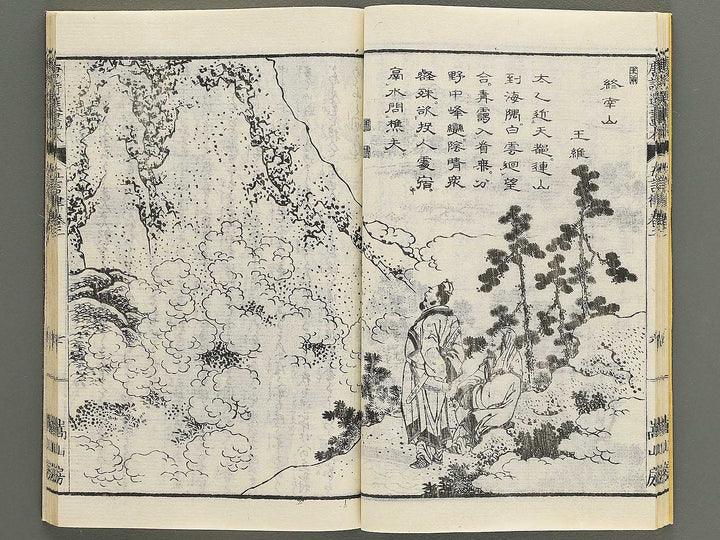 終南山
王維
太乙近天都連山
到海隅白雲迴望
合青靄入看無分
野中峰變陰晴衆
壑殊欲投人處宿
隔水問樵夫
嵩山房
嵩山房